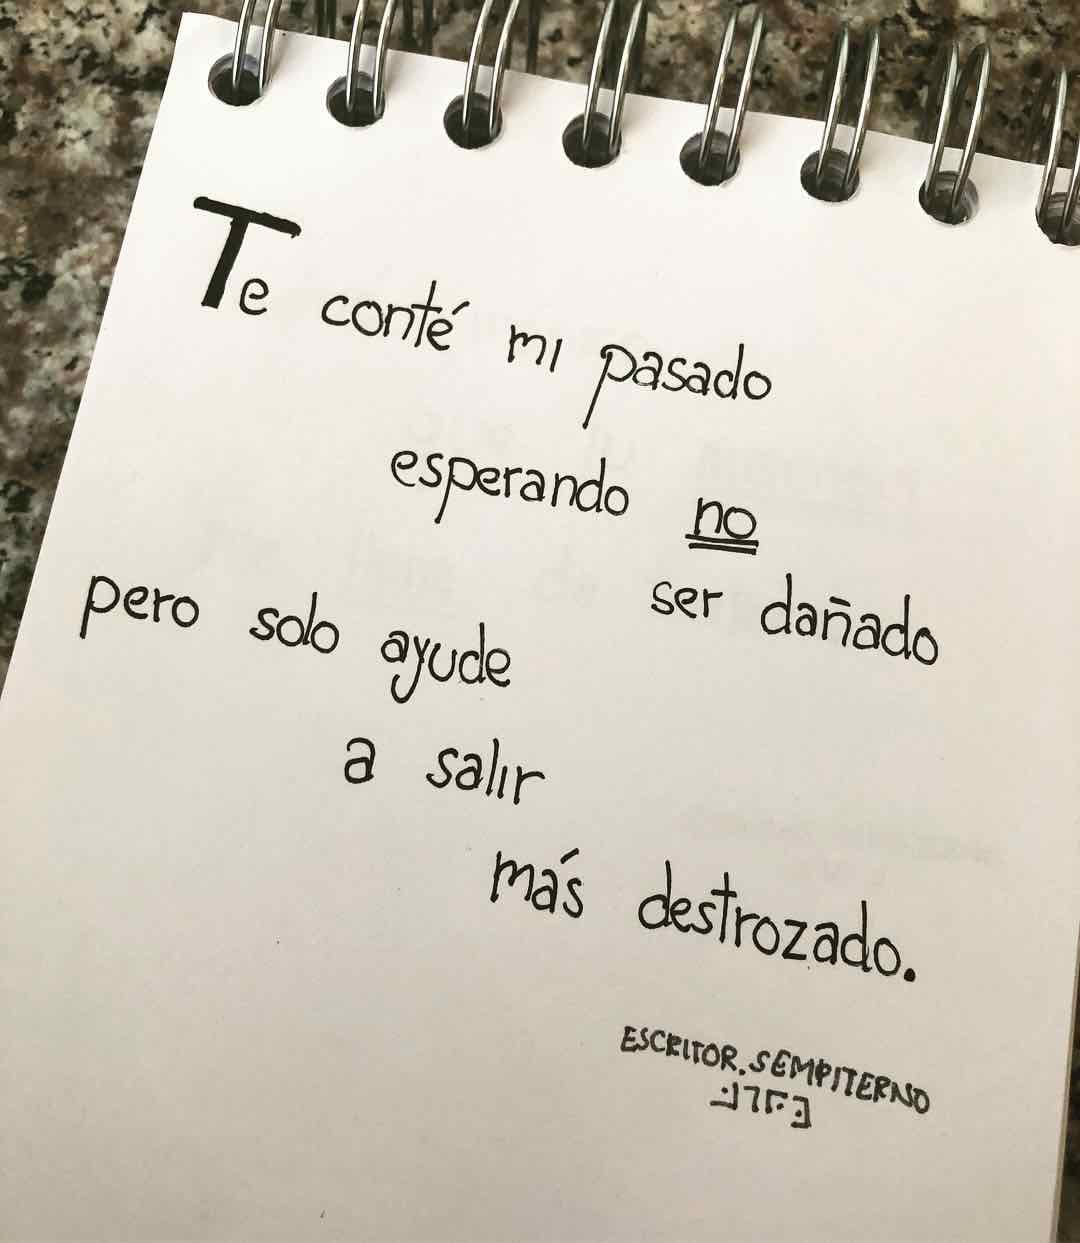 Te conté mi pasado
esperando no
ser dañado
pero solo ayude
a salir
más destrozado.
ESCRITOR.SEMPITERNO